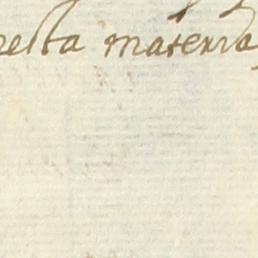 esta materia